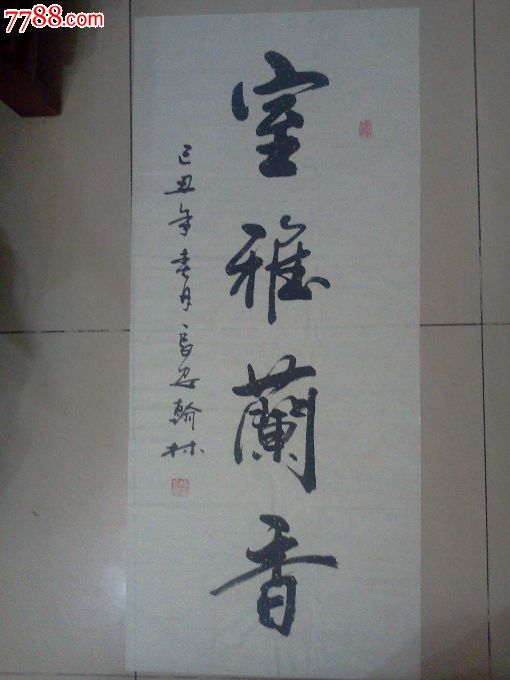 7788.com
室雅蘭香
己丑年春月長安翰林